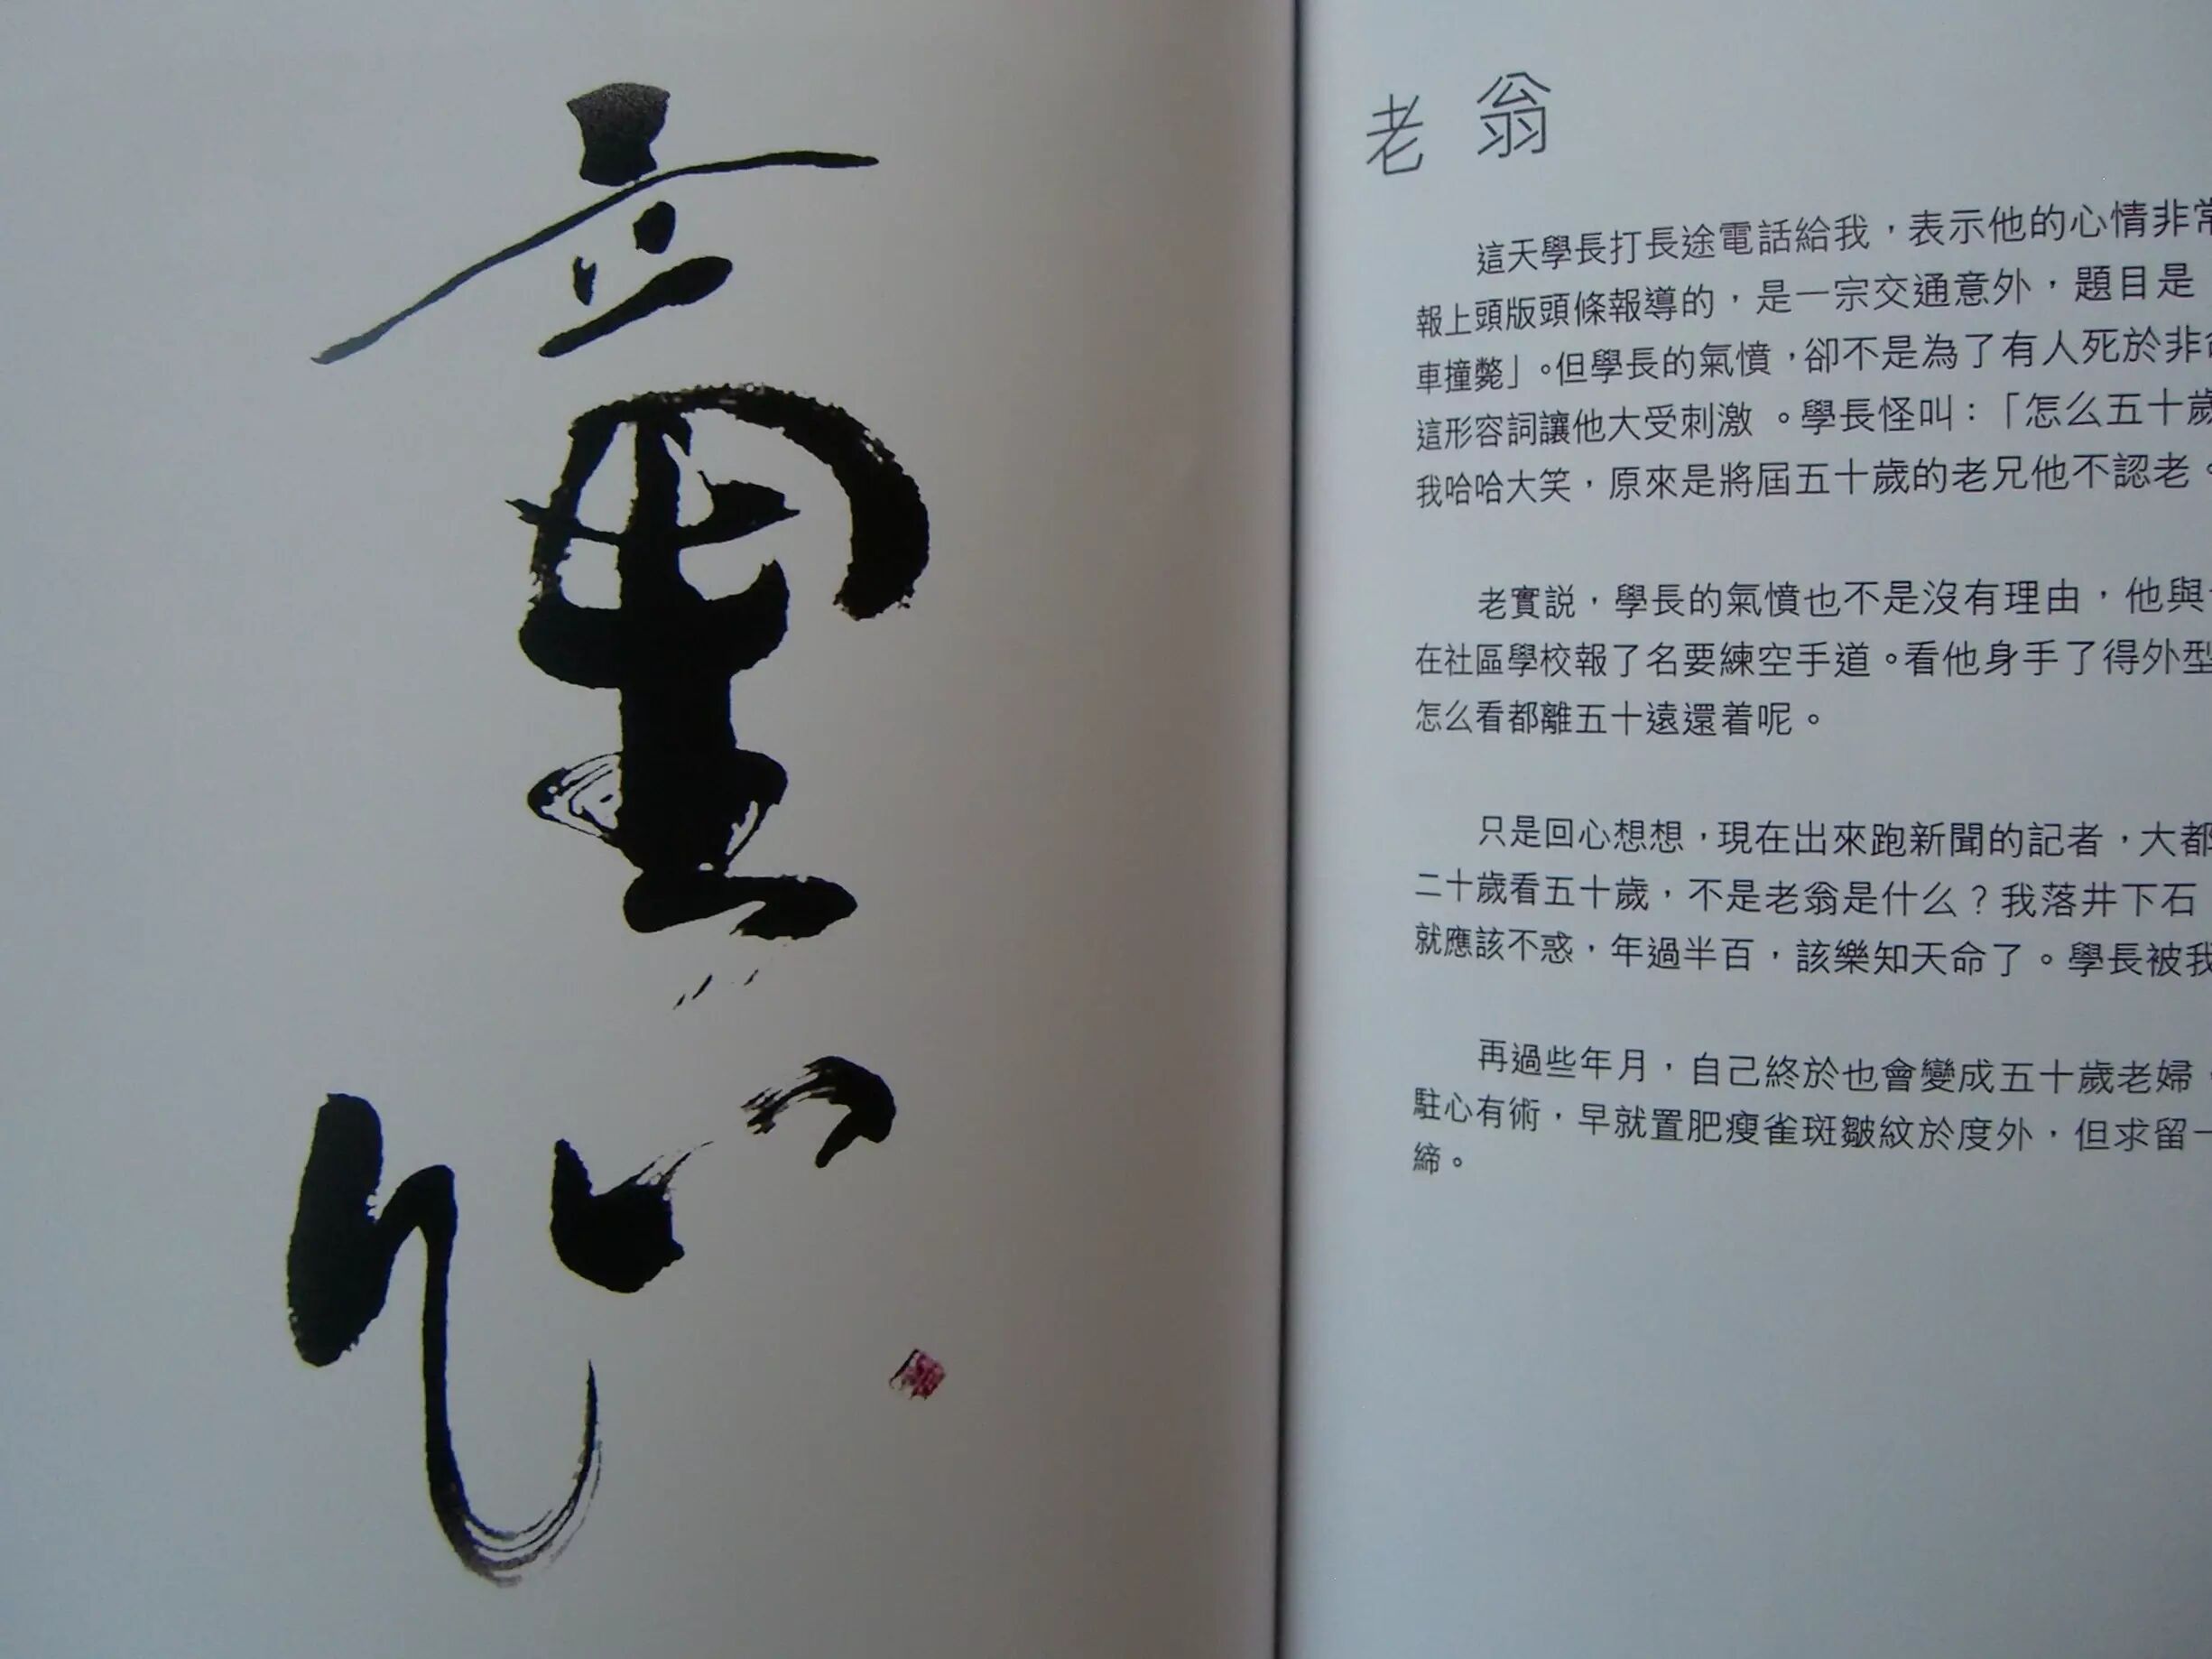 童心
老翁
這天學長打長途電話給我，表示他的心情非常
報上頭版頭條報導的，是一宗交通意外，題目是
車撞斃」。但學長的氣憤，卻不是為了有人死於非
這形容詞讓他大受刺激。學長怪叫：「怎么五十歲
我哈哈大笑，原來是將屆五十歲的老兄他不認老。
老實說，學長的氣憤也不是沒有理由，他與
在社區學校報了名要練空手道。看他身手了得外型
怎么看都離五十遠還着呢。
只是回心想想，現在出來跑新聞的記者，大都
二十歲看五十歲，不是老翁是什么？我落井下石
就應該不惑，年過半百，該樂知天命了。學長被我
再過些年月，自己終於也會變成五十歲老婦
駐心有術，早就置肥瘦雀斑皺紋於度外，但求留一
締。